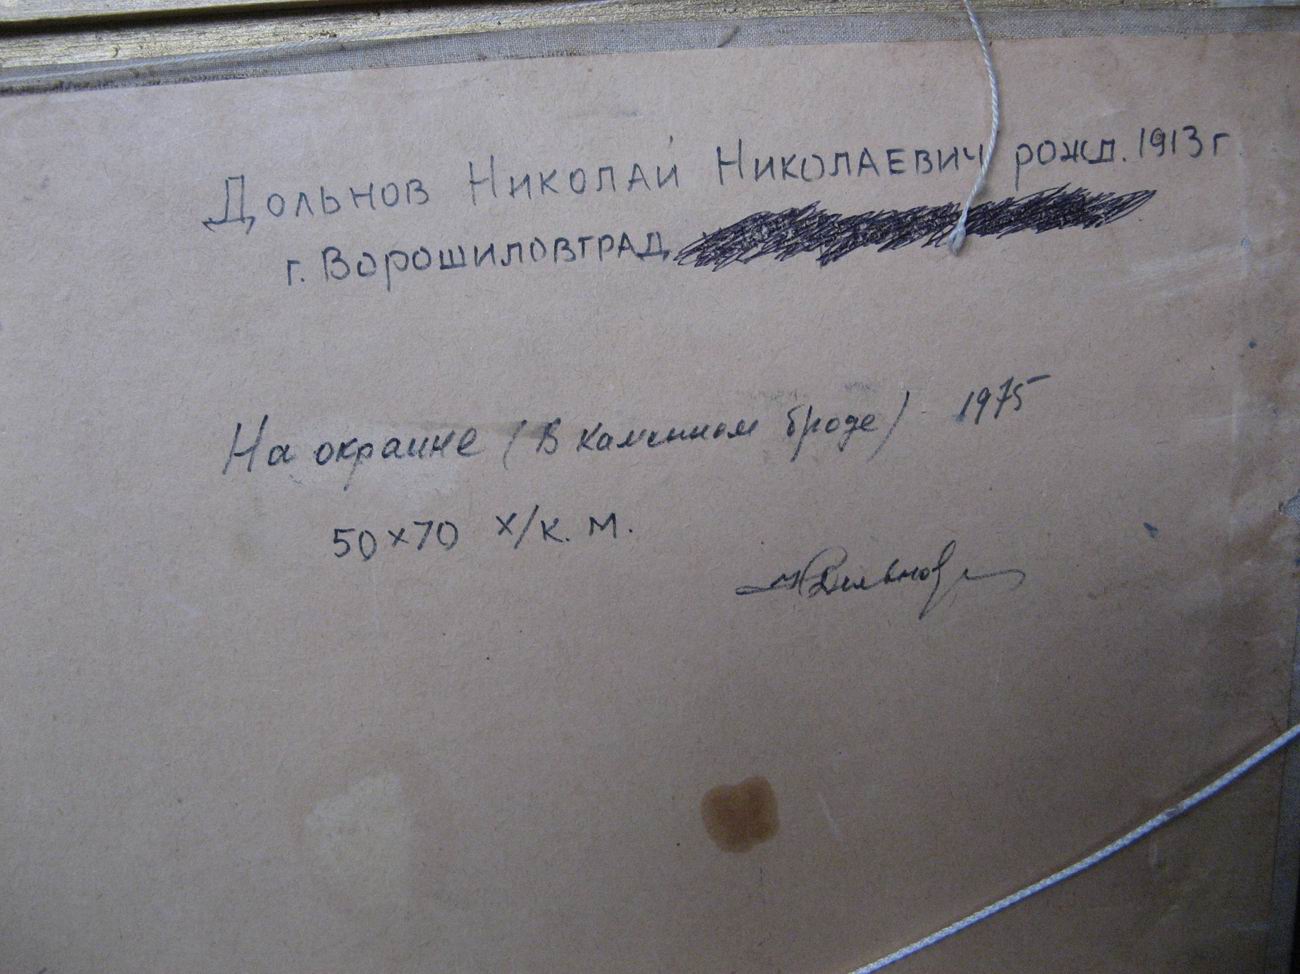 Дольнов Николай Николаевич рожд. 1913 г
г. Ворошиловград
На окраине (В каменном броде) 1975
50×70 х/к. м.
НДольнов